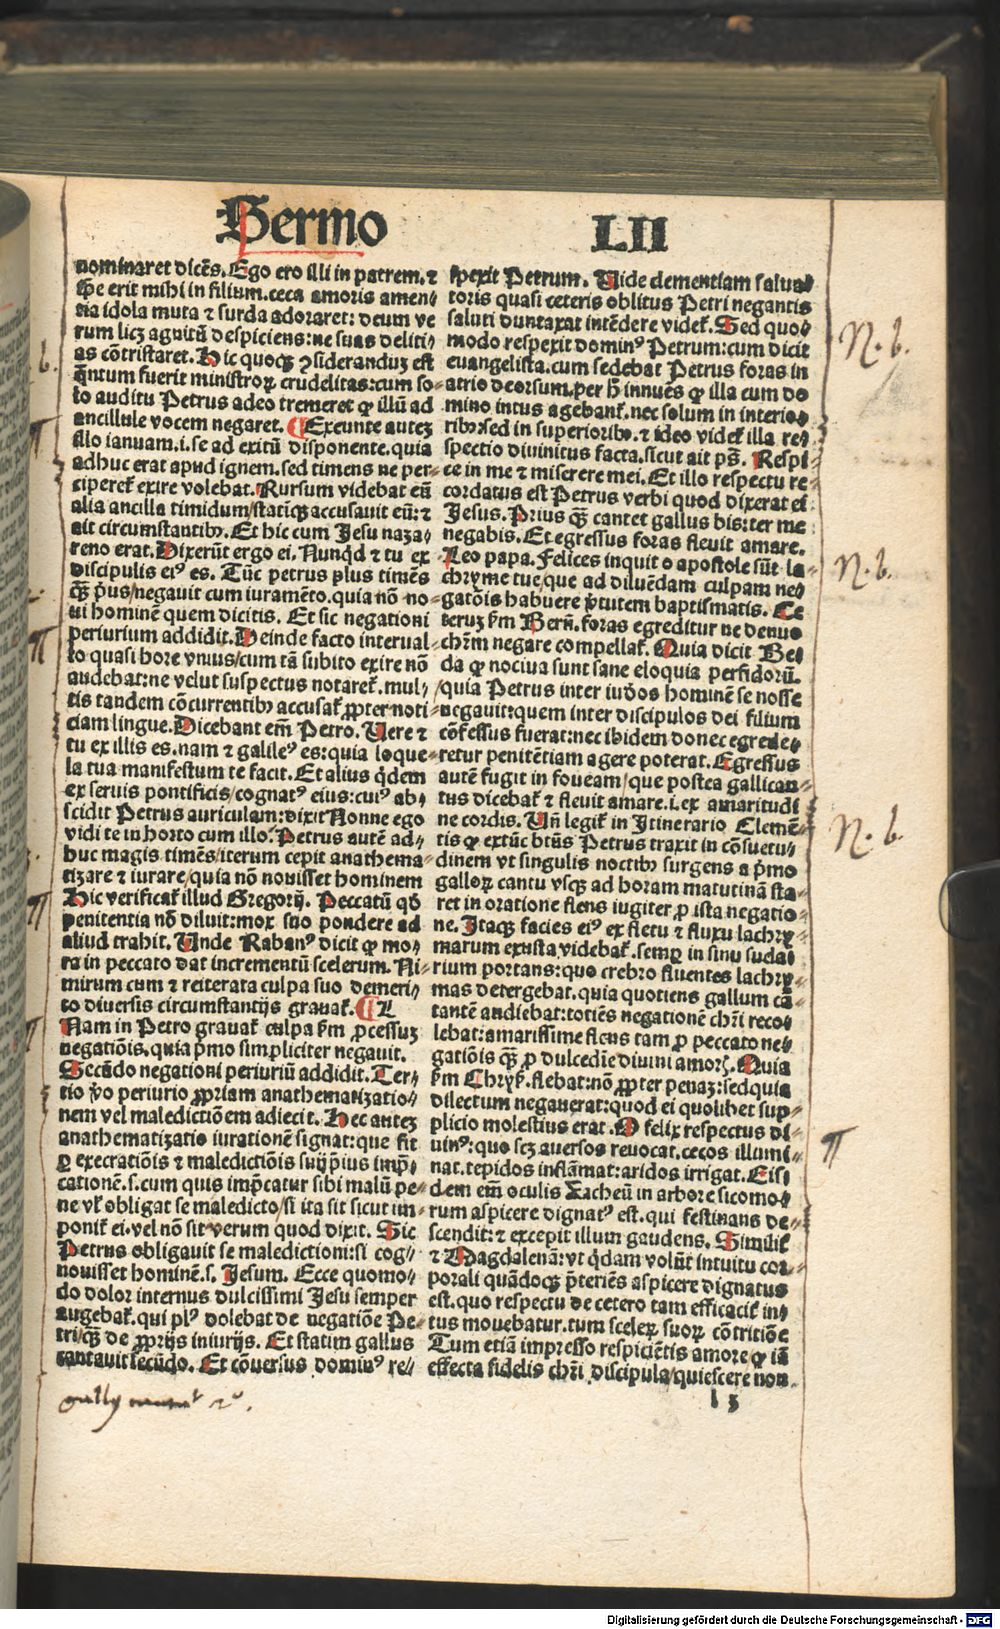 Sermo LII
nominaret dicẽs. Ego ero illi in patrem. ⁊
ip̃e erit mihi in filium. ceca amoris amen-
tia idola muta ⁊ surda adoraret: deum ve
rum licꝫ agnitũ despiciens: ne suas deliti-
as cõtristaret. Hic quoqꝫ ꝯsideranduꝫ est
q̃ntum fuerit ministroꝝ crudelitas: cum so-
lo auditu Petrus adeo tremeret ꝙ illũ ad
ancillule vocem negaret. ¶ Exeunte auteꝫ
illo ianuam. i. se ad exitũ disponente. quia
adhuc erat apud ignem. sed timens ne per-
cipereť exire volebat. Rursum videbat eũ
alia ancilla timidum/statiqꝫ accusauit eũ: ⁊
ait circumstantibꝰ. Et hic cum Jesu naza-
reno erat. Dixerũt ergo ei. Nunqd̃ ⁊ tu ex
discipulis eiꝰ es. Tũc petrus plus timẽs
qꝫ̃ p̃us/negauit cum iuramẽto. quia nõ no-
ui hominẽ quem dicitis. Et sic negationi
periurium addidit. Deinde facto interual-
lo quasi hore vnius/cum tã subito exire nõ
audebat: ne velut suspectus notareť. mul-
tis tandem cõcurrentibꝰ accusať ꝓpter noti-
ciam lingue. Dicebant em̃ Petro. Vere ⁊
tu ex illis es. nam ⁊ galileꝰ es: quia loque-
la tua manifestum te facit. Et alius q̃dem
ex seruis pontificis/cognatꝰ eius: cuiꝰ ab-
scidit Petrus auriculam: dixit Nonne ego
vidi te in horto cum illo. Petrus autẽ ad-
huc magis timẽs/iterum cepit anathema-
tizare ⁊ iurare/quia nõ nouisset hominem
Hic verificať illud Gregorij. Peccatũ qd̃
penitentia nõ diluit: mox suo pondere ad
aliud trahit. Unde Rabanꝰ dicit ꝙ mo-
ra in peccato dat incrementũ scelerum. Ni-
mirum cum ⁊ reiterata culpa suo demeri-
to diuersis circumstantijs grauať. ¶ L
Nam in Petro grauať culpa ẜm ꝓcessuꝫ
negatiõis. quia p̃mo simpliciter negauit.
Secũdo negationi periuriũ addidit. Ter-
tio ṽo periurio ꝓpriam anathematizatio-
nem vel maledictiõem adiecit. Hec auteꝫ
anathematizatio iurationẽ signat: que fit
ꝑ execratiõis ⁊ maledictiõis suijp̃ius imp̃-
cationẽ. s. cum quis imp̃catur sibi malũ pe-
ne vľ obligat se maledicto/si ita sit sicut im-
poniť ei. vel nõ sit verum quod dixit. Sic
Petrus obligauit se maledictioni: si cog-
nouisset hominẽ. s. Jesum. Ecce quomo-
do dolor internus dulcissimi Jesu semper
augebať. qui plꝰ dolebat de negatiõe Pe-
tri/qꝫ̃ de ꝓprijs iniurijs. Et statim gallus
cantauit secũdo. Et cõuersus dominꝰ re-
spexit Petrum. Uide clementiam salua-
toris quasi ceteris oblitus Petri negantis
saluti duntaxat intẽdere videť. Sed quo-
modo respexit dominꝰ Petrum: cum dicit
euangelista. cum sedebat Petrus foras in
atrio deorsum. per h̃ innuẽs ꝙ illa cum do
mino intus agebanť. nec solum in interio-
ribꝰ: sed in superioribꝰ. ⁊ ideo videť illa re-
spectio diuinitus facta. sicut ait ps̃. Respi-
ce in me ⁊ miserere mei. Et illo respectu re-
cordatus est Petrus verbi quod dixerat ei
Jesus. Prius qꝫ̃ cantet gallus bis: ter me
negabis. Et egressus foras fleuit amare.
Leo papa. Felices inquit o apostole sũt la-
chryme tue/que ad diluẽdam culpam ne-
gatõis habuere ṽtutem baptismatis. Ce
teruꝫ ẜm Berñ. foras egreditur ne denuo
chr̃m negare compellať. Quia dicit Be-
da ꝙ nociua sunt sane eloquia perfidorũ.
quia Petrus inter iudẽos hominẽ se nosse
negauit: quem inter discipulos dei filium
cõfessus fuerat: nec ibidem donec egrede-
retur penitẽtiam agere poterat. Egressus
autẽ fugit in foueam/que postea gallican-
tus dicebať ⁊ fleuit amare. i. ex amaritudi
ne cordis. Uñ legiť in Itinerario Clemẽ-
tis ꝙ extũc btũs Petrus traxit in cõsuetu-
dinem vt singulis noctibꝰ surgens a p̃mo
galloꝝ cantu vsqꝫ ad horam matutinã sta-
ret in oratione flens iugiter ꝓ ista negatio-
ne. Itaqꝫ facies eiꝰ ex fletu ⁊ fluxu lachry-
marum exusta videbať. semꝑ in sinu suda-
rium portans: quo crebro fluentes lachry-
mas detergebat. quia quotiens gallum cã
tantẽ audiebat: totiẽs negationẽ chr̃i reco-
lebat: amarissime flens tam ꝓ peccato ne-
gatiõis qꝫ̃ ꝓ dulcedĩe diuini amorꝭ. Quia
ẜm Chryẜ. flebat: nõ ꝓpter penaꝫ: sed quia
dilectum negauerat: quod ei quolibet sup-
plicio molestius erat. O felix respectus di-
uinꝰ: quo scꝫ auersos reuocat. cecos illumi-
nat. tepidos inflãmat: aridos irrigat. Eis-
dem em̃ oculis Zacheũ in arbore sicomo-
rum aspicere dignatꝰ est. qui festinans de-
scendit: ⁊ excepit illum gaudens. Similiť
⁊ Magdalenã: vt q̃dam volũt intuitu cor-
porali quãdoqꝫ p̃teriẽs aspicere dignatus
est. quo respectu de cetero tam efficaciť in-
tus mouebatur. tum sceleꝝ suoꝝ cõtritiõe
Tum etiã impresso respiciẽtis amore ꝙ iã
effecta fidelis chr̃i discipula/quiescere non
l 3
N. b.
N. b.
N. b.
¶
Digitalisierung gefördert durch die Deutsche Forschungsgemeinschaft - DFG